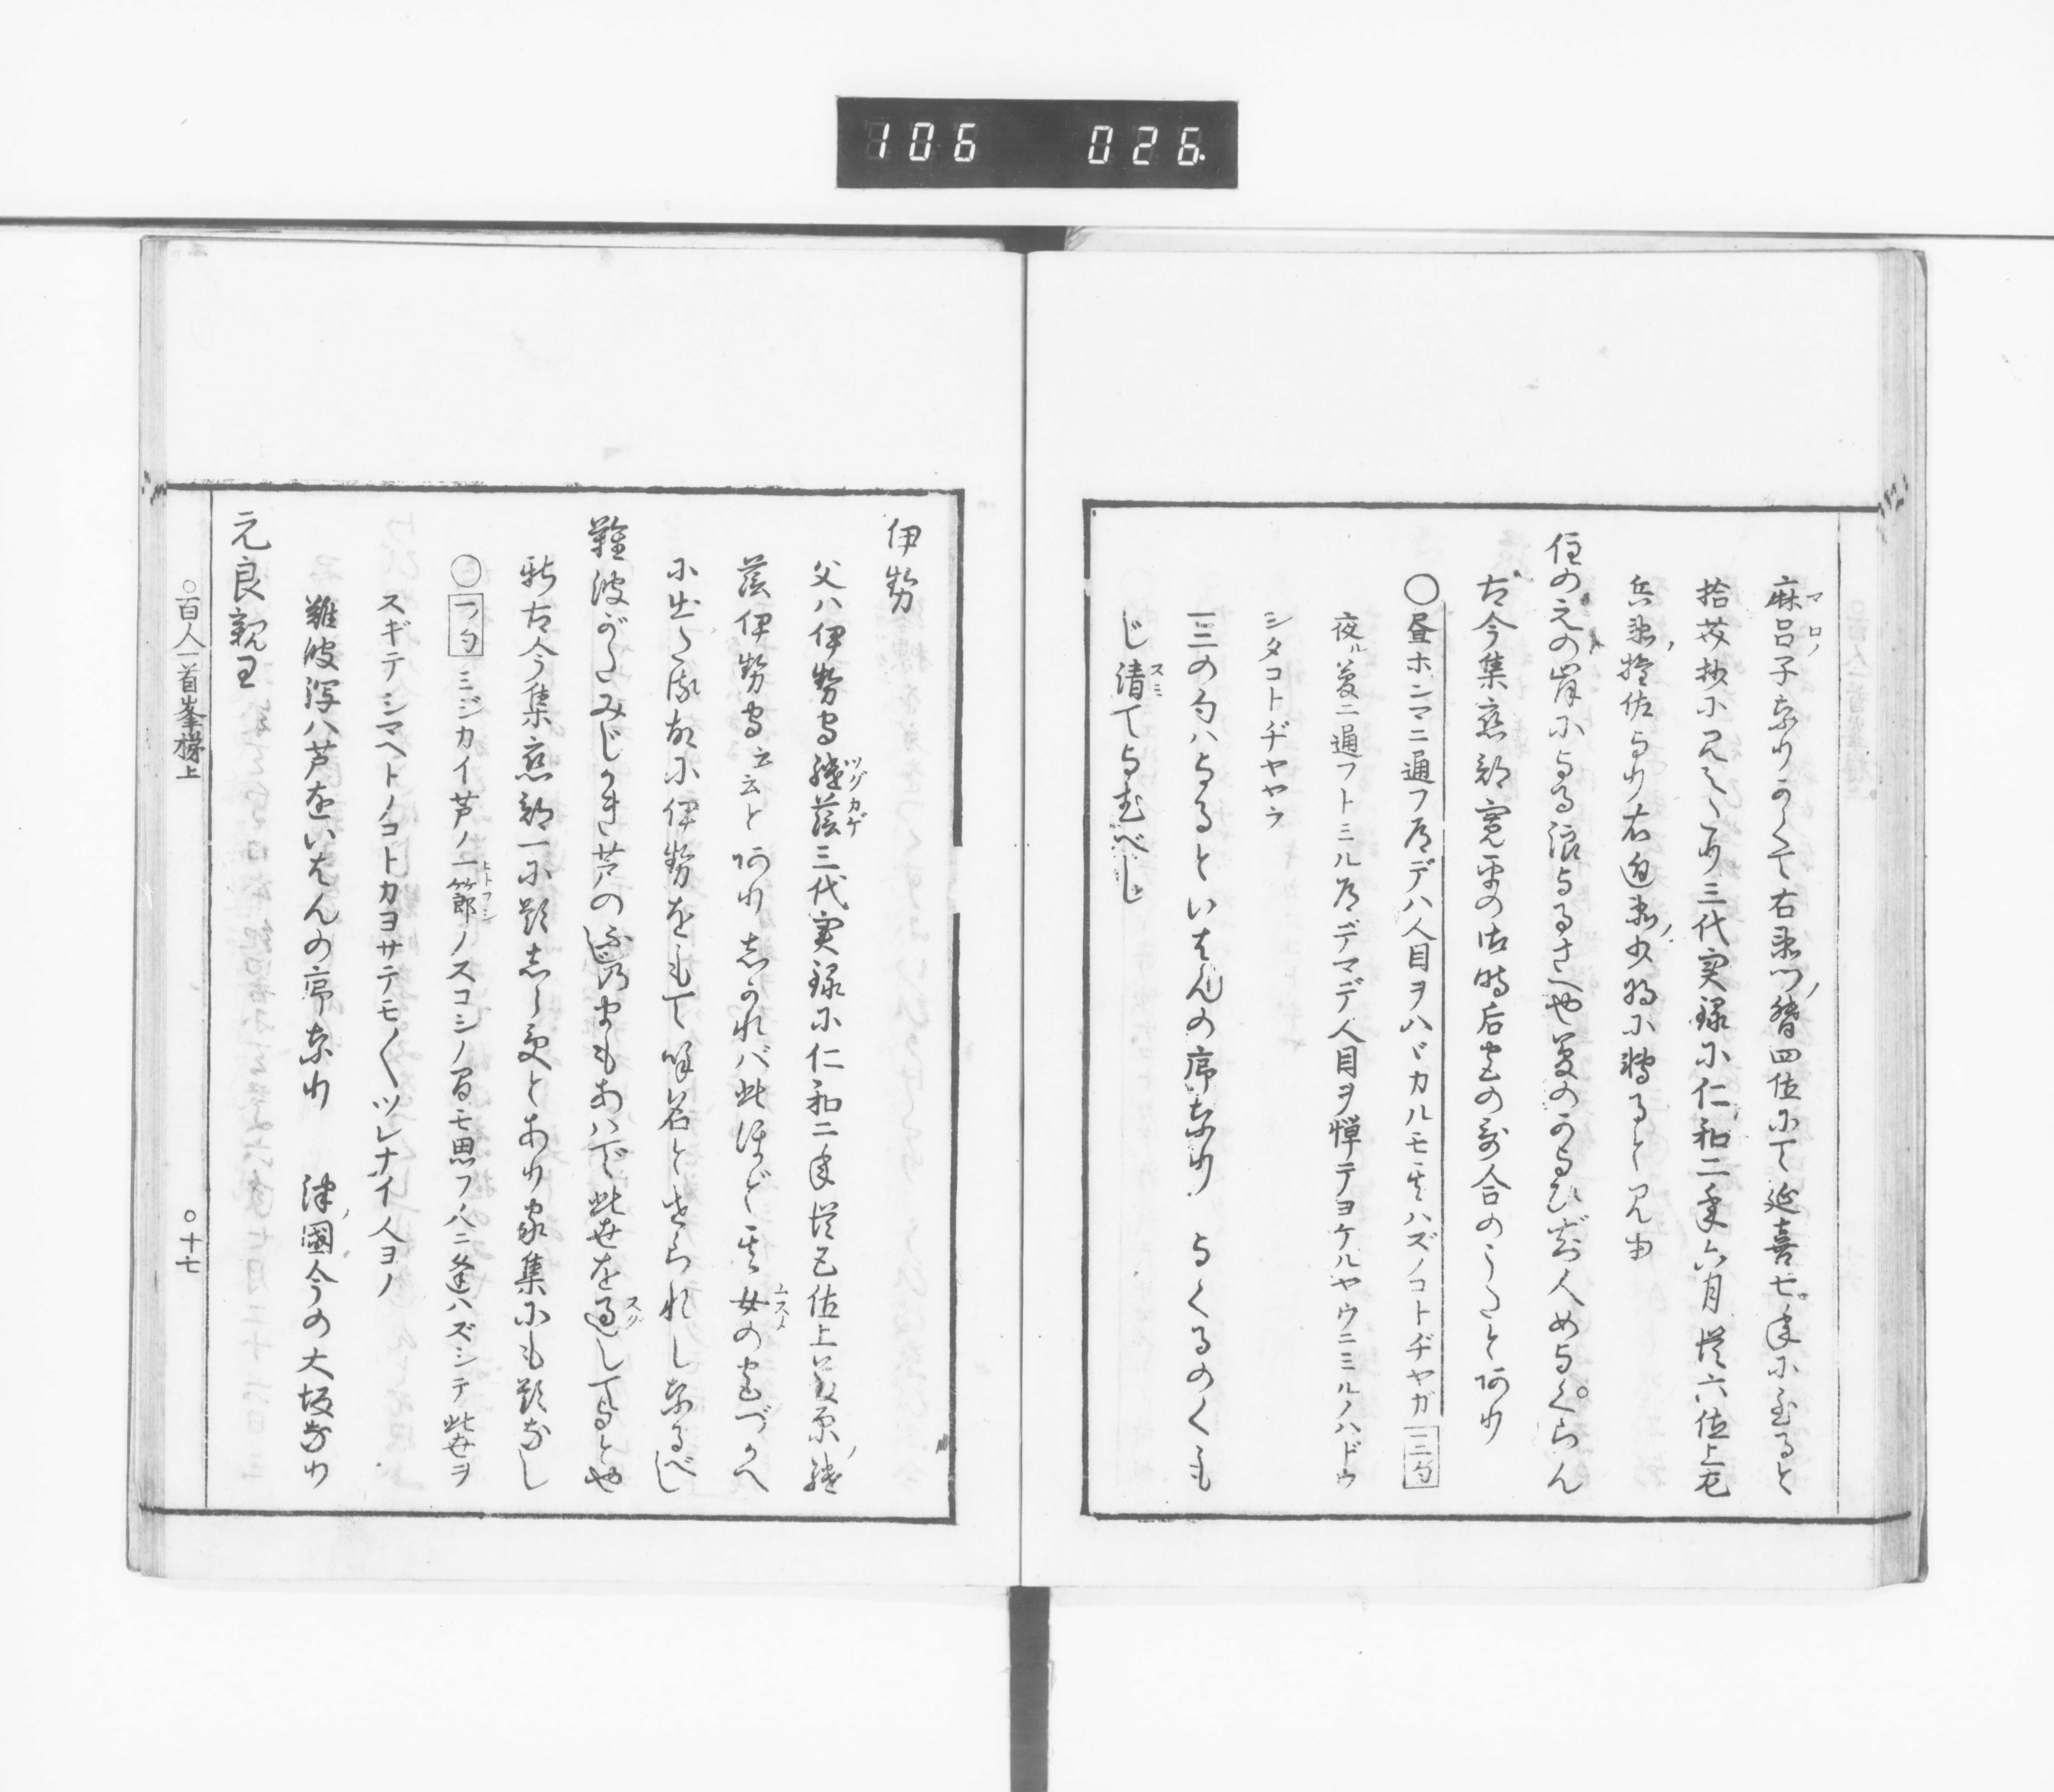 106 026
麻呂ノ子なりかくて右兵衛督四位にて延喜七年に至ると
拾芥抄に見えたり三代実録に仁和二年六月従六位上左
兵衛権佐より右近衛少将に轉ると見ゆ
住の江の岸による浪よるさへや夢のかよひ路人めよくらん
古今集恋部寛平の御時后宮の哥合のうたとあり
○昼ホンマニ通フ道デハ人目ヲハバカルモ其ハズノコトヂヤガ 一二句
夜ル夢ニ通フトミル道デマデ人目ヲ憚テヨケルヤウニミルノハドウ
シタコトヂヤヤラ
一二の句ハよるといはんの序なり よくるのくも
じ清てよむべし
伊勢
父ハ伊勢守継蔭三代実録に仁和二年従五位上藤原ノ継
蔭伊勢守云云とありしかれバ此ほど其女の宮づかへ
に出たる故に伊勢をもて呼名とせられしなるべし
難波がたみじかき芦のふしのまもあはで此世を過してよとや
新古今集恋部一に題しらずとあり家集にも題なし
○一句 ミジカイ芦ノ一節ノスコシノ間モ思フ人ニ逢ハズシテ此世ヲ
スギテシマヘトノコトカヨサテモ〱ツレナイ人ヨノ
難波潟ハ芦をいはんの序なり 津ノ國今の大坂なり
元良親王
○百人一首峯梯上
○十七